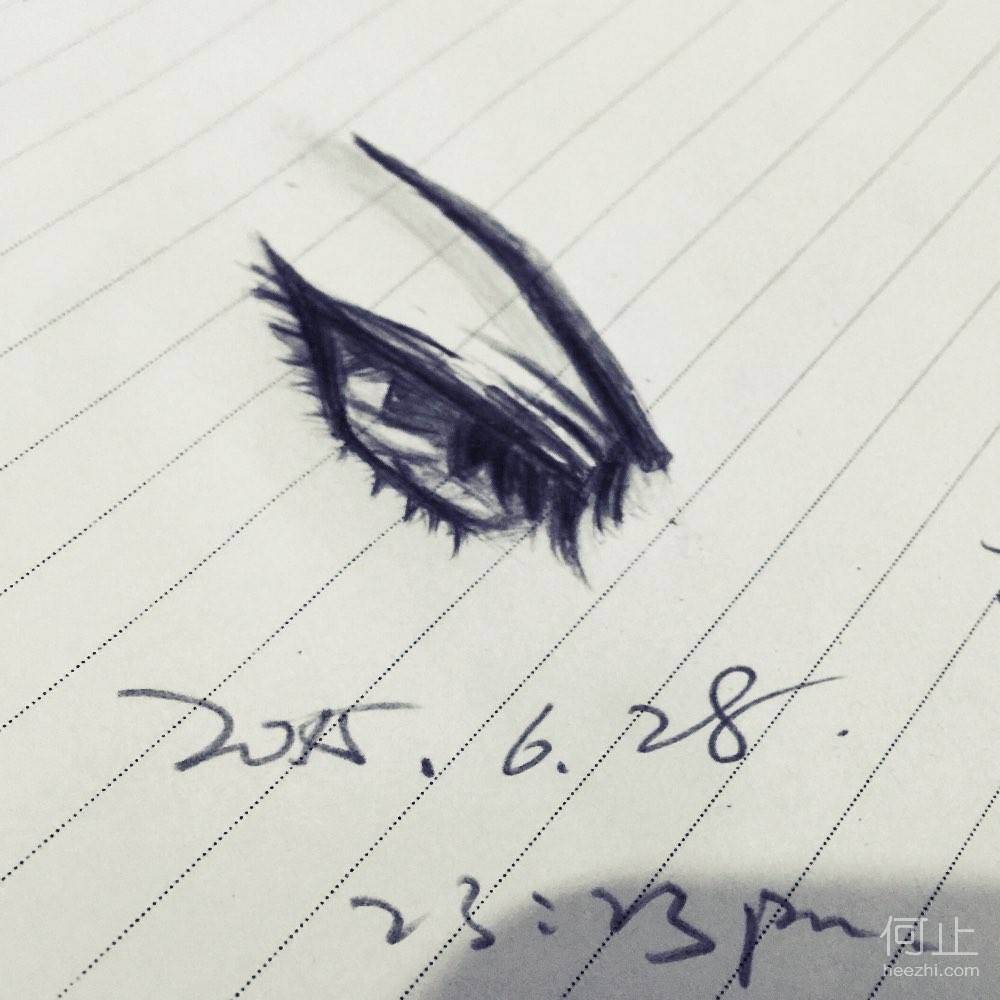 2015.6.28.
23:23pm
何止
heezhi.com